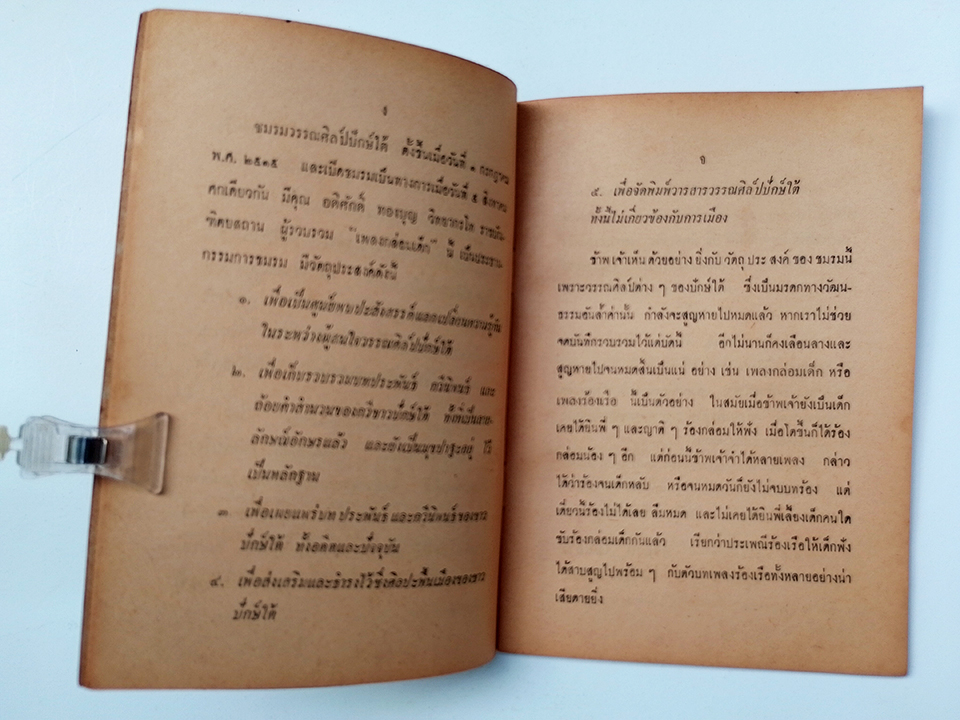 ง
ชมรมวรรณศิลป์ปักษ์ใต้ ตั้งขึ้นเมื่อวันที่ ๑ กรกฎาคม
พ.ศ. ๒๕๑๕ และเปิดชมรมเป็นทางการเมื่อวันที่ ๕ สิงหาคม
ศกเดียวกัน มีคุณ อดิศักดิ์ ทองบุญ วิทยากรโท ราชบัณ-
ฑิตยสถาน ผู้รวบรวม "เพลงกล่อมเด็ก" นี้ เป็นประธาน
กรรมการชมรม มีวัตถุประสงค์ดังนี้
๑. เพื่อเป็นศูนย์พบปะสังสรรค์แลกเปลี่ยนความรู้กัน
ในระหว่างผู้สนใจวรรณศิลป์ปักษ์ใต้
๒. เพื่อเก็บรวบรวมบทประพันธ์ กวีนิพนธ์ และ
ถ้อยคำสำนวนของกวีชาวปักษ์ใต้ ทั้งที่เป็นลาย-
ลักษณ์อักษรแล้ว และยังเป็นมุขปาฐะอยู่ ไว้
เป็นหลักฐาน
๓. เพื่อเผยแพร่บทประพันธ์และกวีนิพนธ์ของชาว
ปักษ์ใต้ ทั้งอดีตและปัจจุบัน
๔. เพื่อส่งเสริมและธำรงไว้ซึ่งศิลปะพื้นเมืองของชาว
ปักษ์ใต้
จ
๕. เพื่อจัดพิมพ์วารสารวรรณศิลป์ปักษ์ใต้
ทั้งนี้ไม่เกี่ยวข้องกับการเมือง
ข้าพเจ้าเห็นด้วยอย่างยิ่งกับวัตถุประสงค์ของชมรมนี้
เพราะวรรณศิลป์ต่าง ๆ ของปักษ์ใต้ ซึ่งเป็นมรดกทางวัฒน-
ธรรมอันล้ำค่านั้น กำลังจะสูญหายไปหมดแล้ว หากเราไม่ช่วย
จดบันทึกรวบรวมไว้แต่บัดนี้ อีกไม่นานก็คงเลือนลางและ
สูญหายไปจนหมดสิ้นเป็นแน่ อย่าง เช่น เพลงกล่อมเด็ก หรือ
เพลงร้องเรือ นี้เป็นตัวอย่าง ในสมัยเมื่อข้าพเจ้ายังเป็นเด็ก
เคยได้ยินพี่ ๆ และญาติ ๆ ร้องกล่อมให้ฟัง เมื่อโตขึ้นก็ได้ร้อง
กล่อมน้อง ๆ อีก แต่ก่อนนี้ข้าพเจ้าจำได้หลายเพลง กล่าว
ได้ว่าร้องจนเด็กหลับ หรือจนหมดวันก็ยังไม่จบบทร้อง แต่
เดี๋ยวนี้ร้องไม่ได้เลย ลืมหมด และไม่เคยได้ยินพี่เลี้ยงเด็กคนใด
ขับร้องกล่อมเด็กกันแล้ว เรียกว่าประเพณีร้องเรือให้เด็กฟัง
ได้สาบสูญไปพร้อม ๆ กับตัวบทเพลงร้องเรือทั้งหลายอย่างน่า
เสียดายยิ่ง